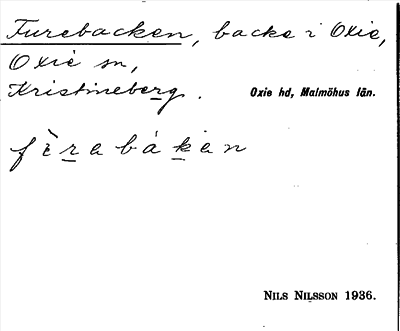 Furebacken, backe i Oxie,
Oxie sn,
Kristineberg. Oxie hd, Malmöhus län.
NILS NILSSON 1936.